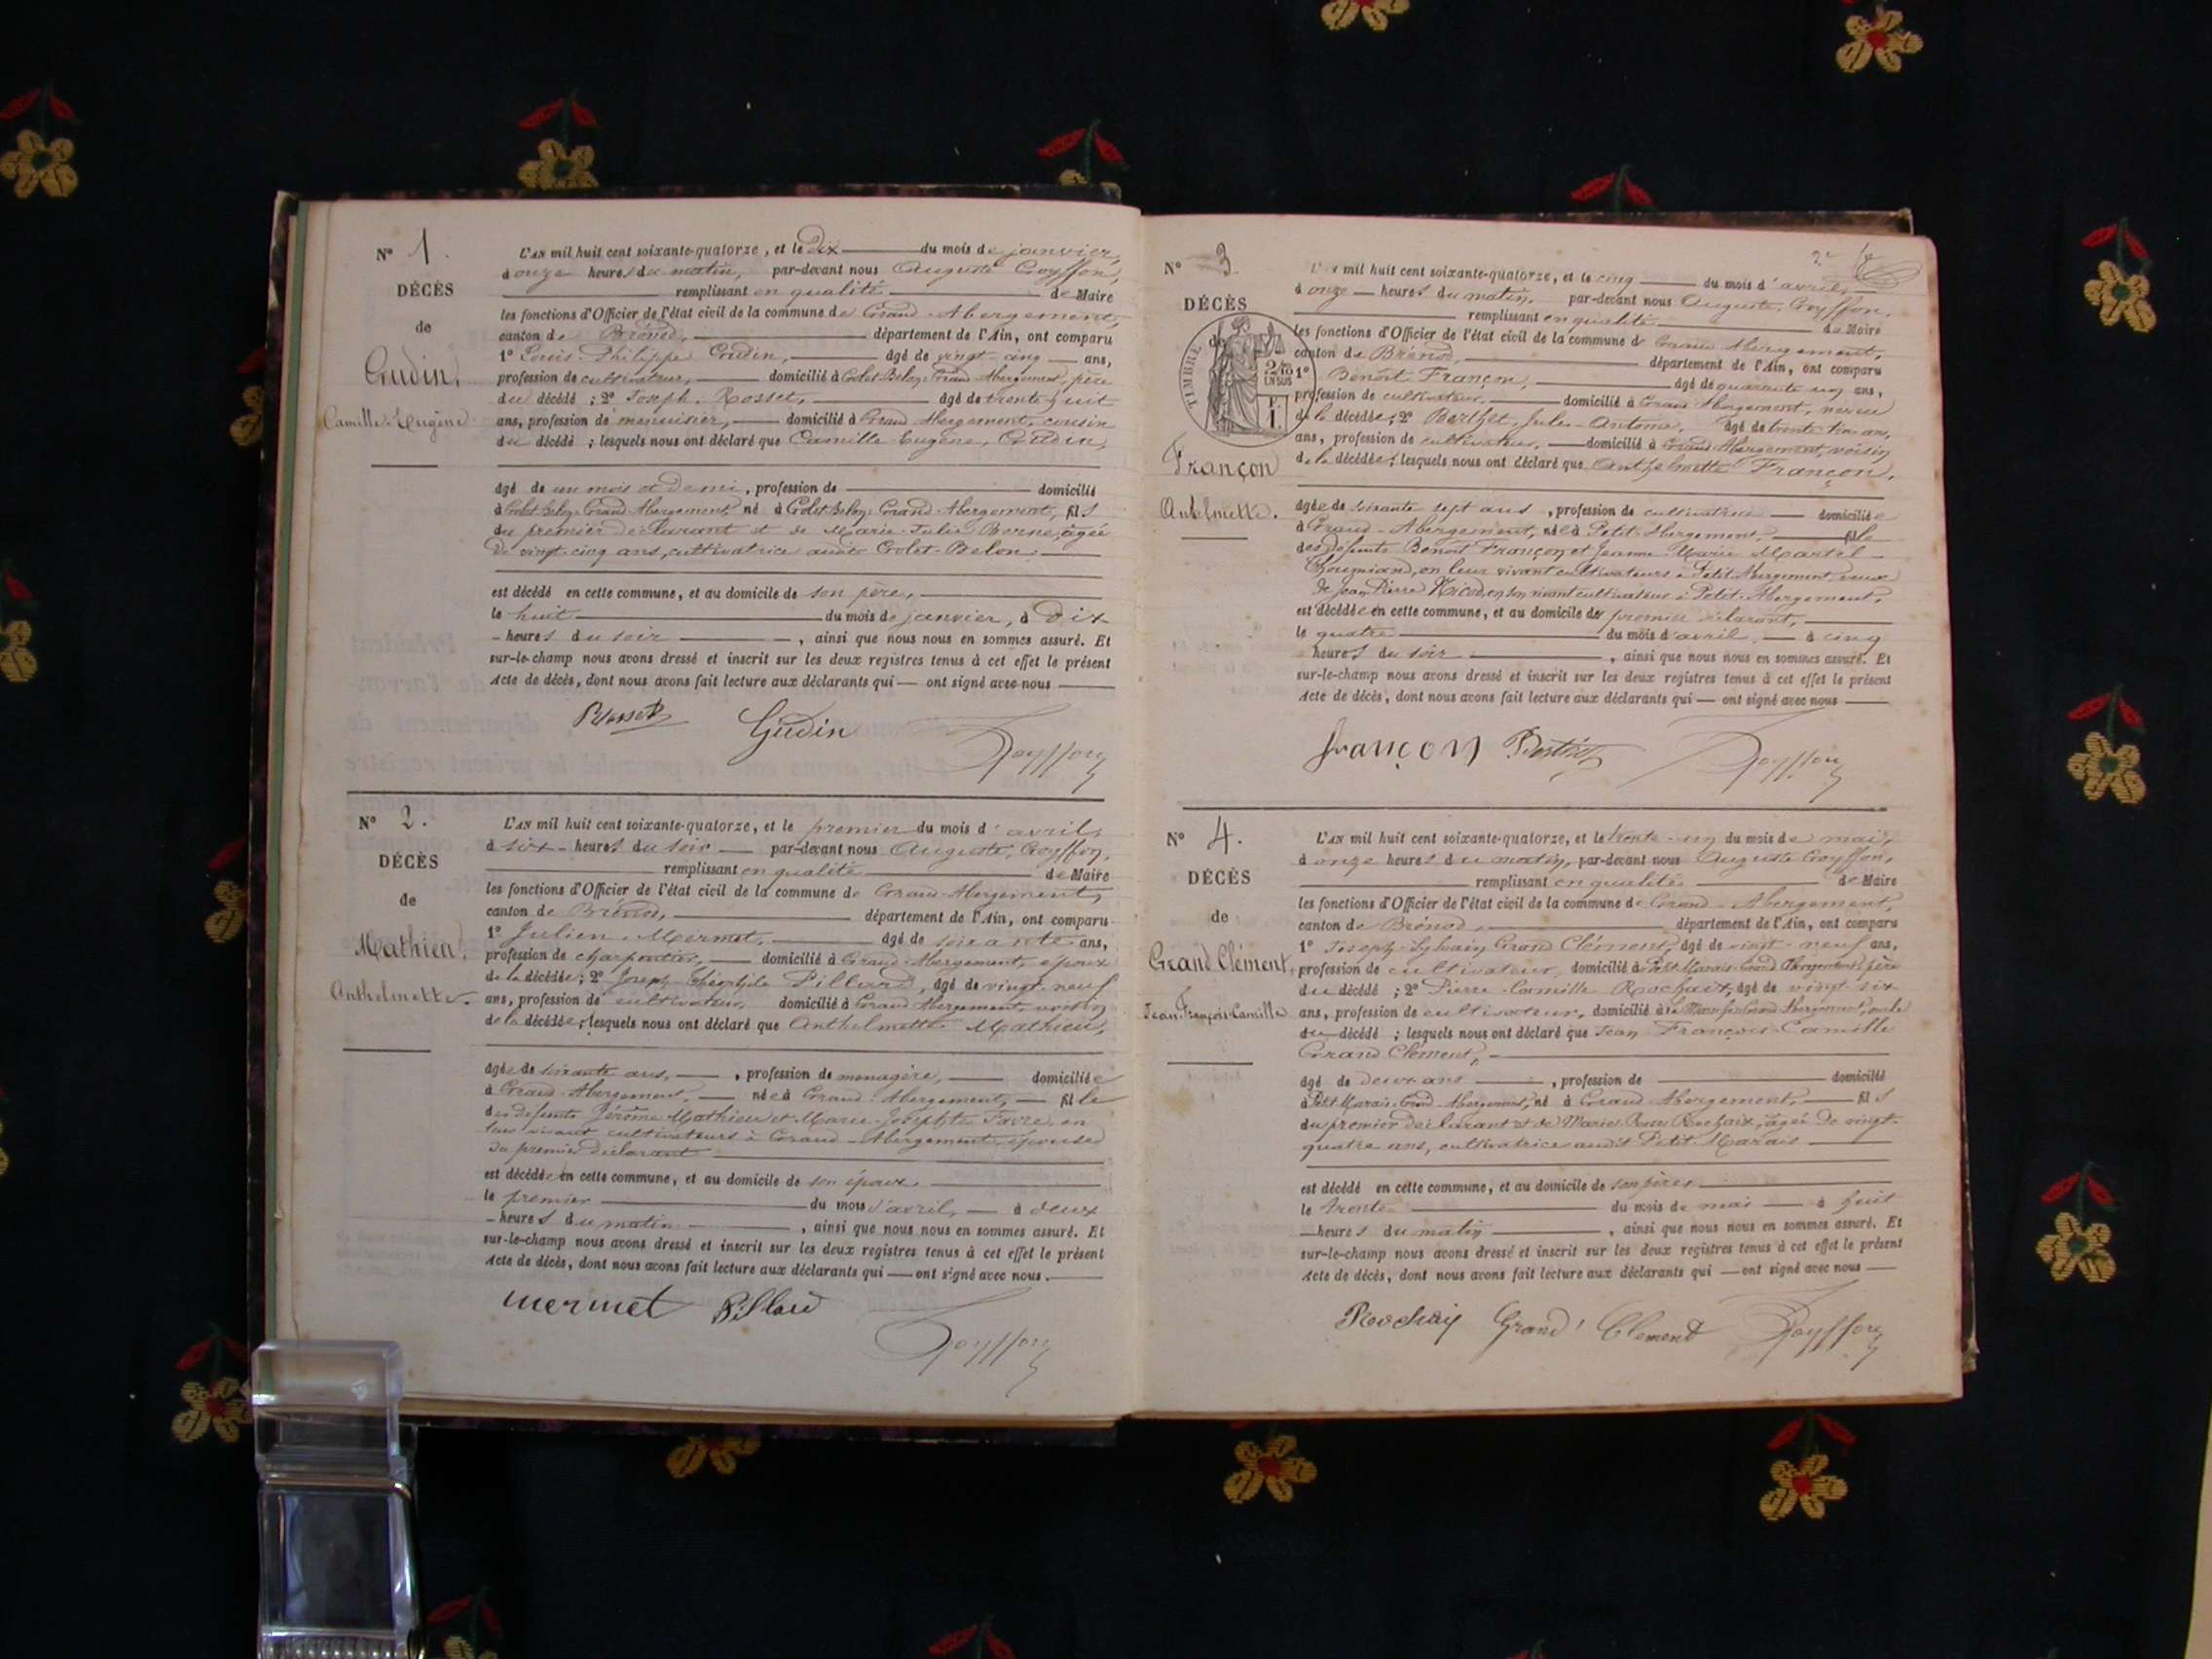 N° 1.
DÉCÈS
de
Gudin,
Camille-Eugène.
L'AN mil huit cent soixante-quatorze, et le Dix du mois de janvier,
à onze heures du matin, par-devant nous Auguste Goyffon,
remplissant en qualité de Maire
les fonctions d'Officier de l'état civil de la commune de Grand-Abergement,
canton de Brénod, département de l'Ain, ont comparu
1° Louis-Philippe Gudin, âgé de vingt-cinq ans,
profession de cultivateur, domicilié à Golet-Belon, Grand-Abergement, père
du décédé ; 2° Joseph Rosset, âgé de trente-huit
ans, profession de menuisier, domicilié à Grand-Abergement, cousin
du décédé ; lesquels nous ont déclaré que Camille-Eugène, Gudin,
âgé de un mois et demi, profession de domicilié
à Golet-Belon, Grand-Abergement, né à Golet-Belon, Grand-Abergement, fils
du premier déclarant et de Marie-Julie Borne, âgée
de vingt-cinq ans, cultivatrice audit Golet-Belon.
est décédé en cette commune, et au domicile de son père,
le huit du mois de janvier, à Dix
heures du soir, ainsi que nous nous en sommes assuré. Et
sur-le-champ nous avons dressé et inscrit sur les deux registres tenus à cet effet le présent
Acte de décès, dont nous avons fait lecture aux déclarants qui ont signé avec nous
Rosset Gudin Goyffon
N° 2.
DÉCÈS
de
Mathieu,
Anthelmette.
L'AN mil huit cent soixante-quatorze, et le premier du mois d'avril,
à six heures du soir par-devant nous Auguste, Goyffon,
remplissant en qualité de Maire
les fonctions d'Officier de l'état civil de la commune de Grand-Abergement,
canton de Brénod, département de l'Ain, ont comparu
1° Julien Mermet, âgé de soixante ans,
profession de charpentier, domicilié à Grand-Abergement, époux
de la décédée ; 2° Joseph-Théophile Pillard, âgé de vingt-neuf
ans, profession de cultivateur, domicilié à Grand-Abergement, voisin
de la décédée ; lesquels nous ont déclaré que Anthelmette Mathieu,
âgée de soixante ans, profession de menagère, domiciliée
à Grand-Abergement, née à Grand-Abergement, fille
des défunts Jérôme Mathieu et Marie-Josephte Favre, en
leur vivant cultivateurs à Grand-Abergement, épouse
du premier déclarant
est décédée en cette commune, et au domicile de son époux,
le premier du mois d'avril, à deux
heures du matin, ainsi que nous nous en sommes assuré. Et
sur-le-champ nous avons dressé et inscrit sur les deux registres tenus à cet effet le présent
Acte de décès, dont nous avons fait lecture aux déclarants qui ont signé avec nous.
mermet Pillard Goyffon
2e
N° 3
DÉCÈS
de
TIMBRE
2/10 EN SUS
F. 1.
Françon
Anthelmette.
L'AN mil huit cent soixante-quatorze, et le cinq du mois d'avril,
à onze heures du matin, par-devant nous Auguste, Goyffon,
remplissant en qualité de Maire
les fonctions d'Officier de l'état civil de la commune de Grand-Abergement,
canton de Brénod, département de l'Ain, ont comparu
1° Benoît Françon, âgé de quarante cinq ans,
profession de cultivateur, domicilié à Grand-Abergement, neveu
de la décédée ; 2° Berthet, Jules-Antoine, âgé de trente trois ans,
ans, profession de cultivateur, domicilié à Grand-Abergement, voisin
de la décédée ; lesquels nous ont déclaré que Anthelmette Françon,
âgée de soixante sept ans, profession de cultivatrice domiciliée
à Grand-Abergement, née à Petit-Abergement, fille
des défunts Benoît Françon et Jeanne-Marie Martel
en leur vivant cultivateurs à Petit-Abergement, veuve
de Jean-Pierre Nicod, en son vivant cultivateur à Petit-Abergement,
est décédée en cette commune, et au domicile du premier déclarant,
le quatre du mois d'avril, à cinq
heures du soir, ainsi que nous nous en sommes assuré. Et
sur-le-champ nous avons dressé et inscrit sur les deux registres tenus à cet effet le présent
Acte de décès, dont nous avons fait lecture aux déclarants qui ont signé avec nous
françon Berthet Goyffon
N° 4.
DÉCÈS
de
Grand Clément,
Jean-François-Camille
L'AN mil huit cent soixante-quatorze, et le trente-un du mois de mai,
à onze heures du matin, par-devant nous Auguste Goyffon,
remplissant en qualité de Maire
les fonctions d'Officier de l'état civil de la commune de Grand-Abergement,
canton de Brénod, département de l'Ain, ont comparu
1° Joseph-Sylvain Grand Clément, âgé de vingt-neuf ans,
profession de cultivateur, domicilié à Petit-Marais-Grand Abergement, père
du décédé ; 2° Pierre-Camille Rochaix, âgé de vingt-six
ans, profession de cultivateur, domicilié à Grand-Abergement, oncle
du décédé ; lesquels nous ont déclaré que Jean François-Camille
Grand Clément,
âgé de deux ans, profession de domicilié
à Petit Marais-Grand-Abergement, né à Grand-Abergement, fils
du premier déclarant et de Marie Rochaix, âgée de vingt-
quatre ans, cultivatrice audit Petit-Marais
est décédé en cette commune, et au domicile de son père,
le trente du mois de mai à huit
heures du matin, ainsi que nous nous en sommes assuré. Et
sur-le-champ nous avons dressé et inscrit sur les deux registres tenus à cet effet le présent
Acte de décès, dont nous avons fait lecture aux déclarants qui ont signé avec nous
Rochaix Grand' Clement Goyffon